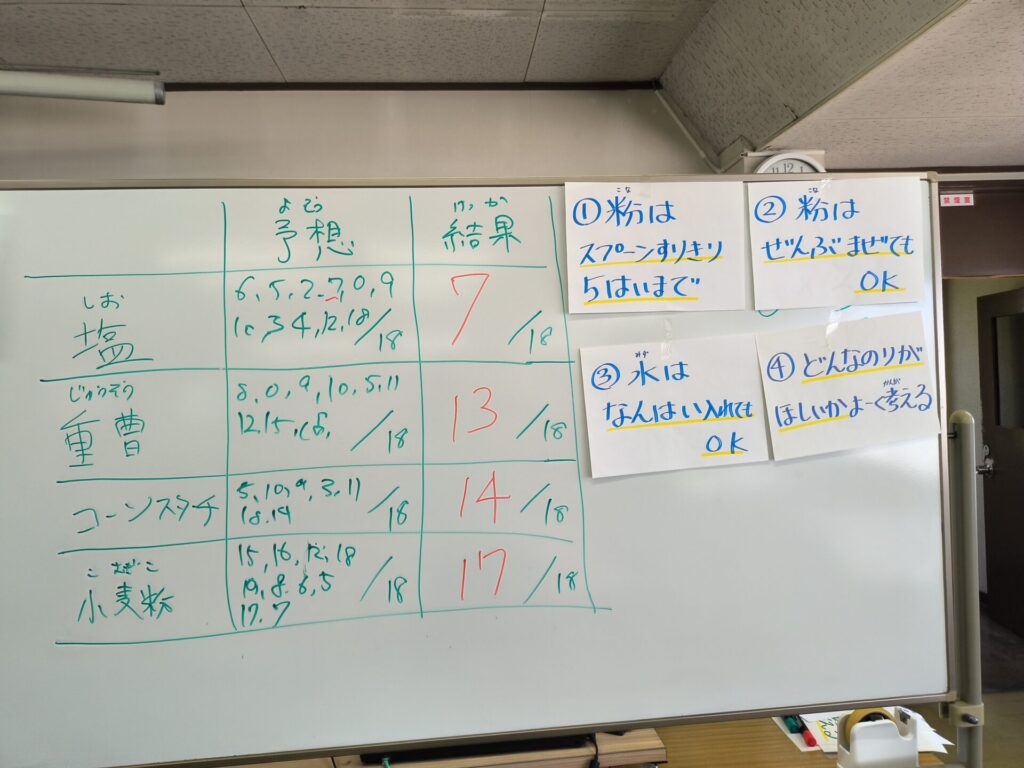 よそう けっか
予想 結果
しお
塩
6、5、2、7、0、9
10、3 4、12、18/18
7/18
じゅうそう
重曹
8、0、9、10、5、11
12、15、
/18
13/18
コーンスターチ
5、10、9、3、11
18、14
/18
14/18
こむぎこ
小麦粉
15、16、12、18
19、8、6、5
17、7
/18
17/18
こな
①粉は
スプーンすりきり
5はいまで
こな
②粉は
ぜんぶまぜても
OK
みず
③水は
なんはい入れても
OK
④どんなのりが
かんが
ほしいかよーく考える
11 12 1
禁煙室